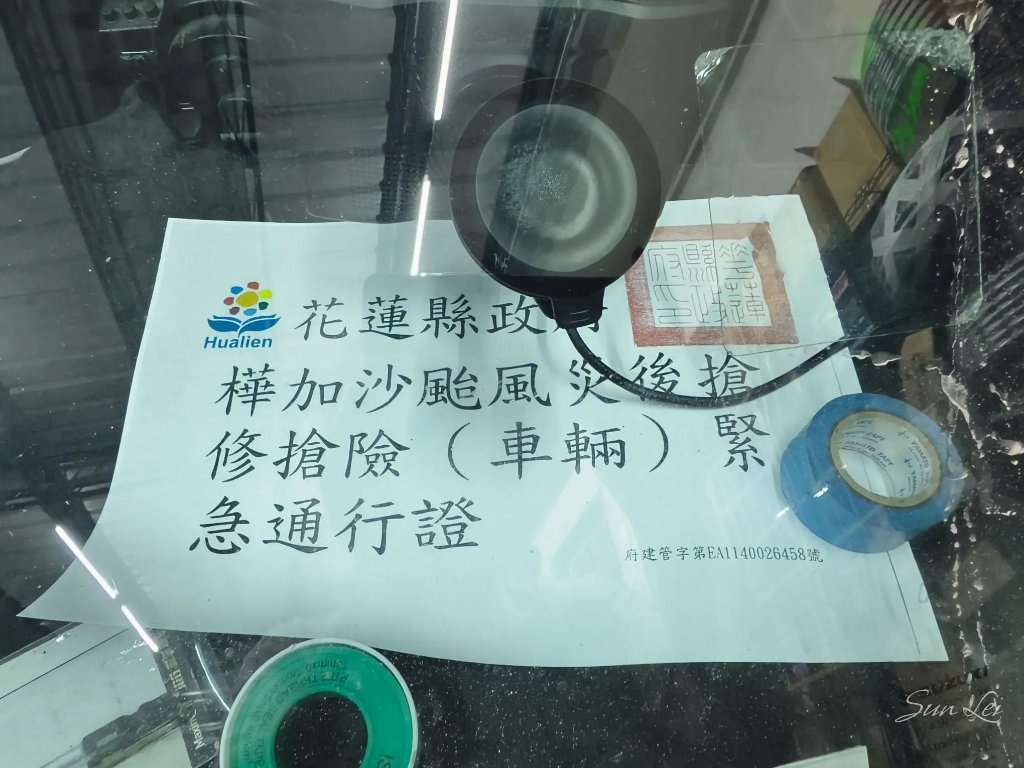 Hualien
花蓮縣政府
樺加沙颱風災後搶
修搶險（車輛）緊
急通行證
府建管字第EA1140026458號
YAMATO TAPE
Sun Lei